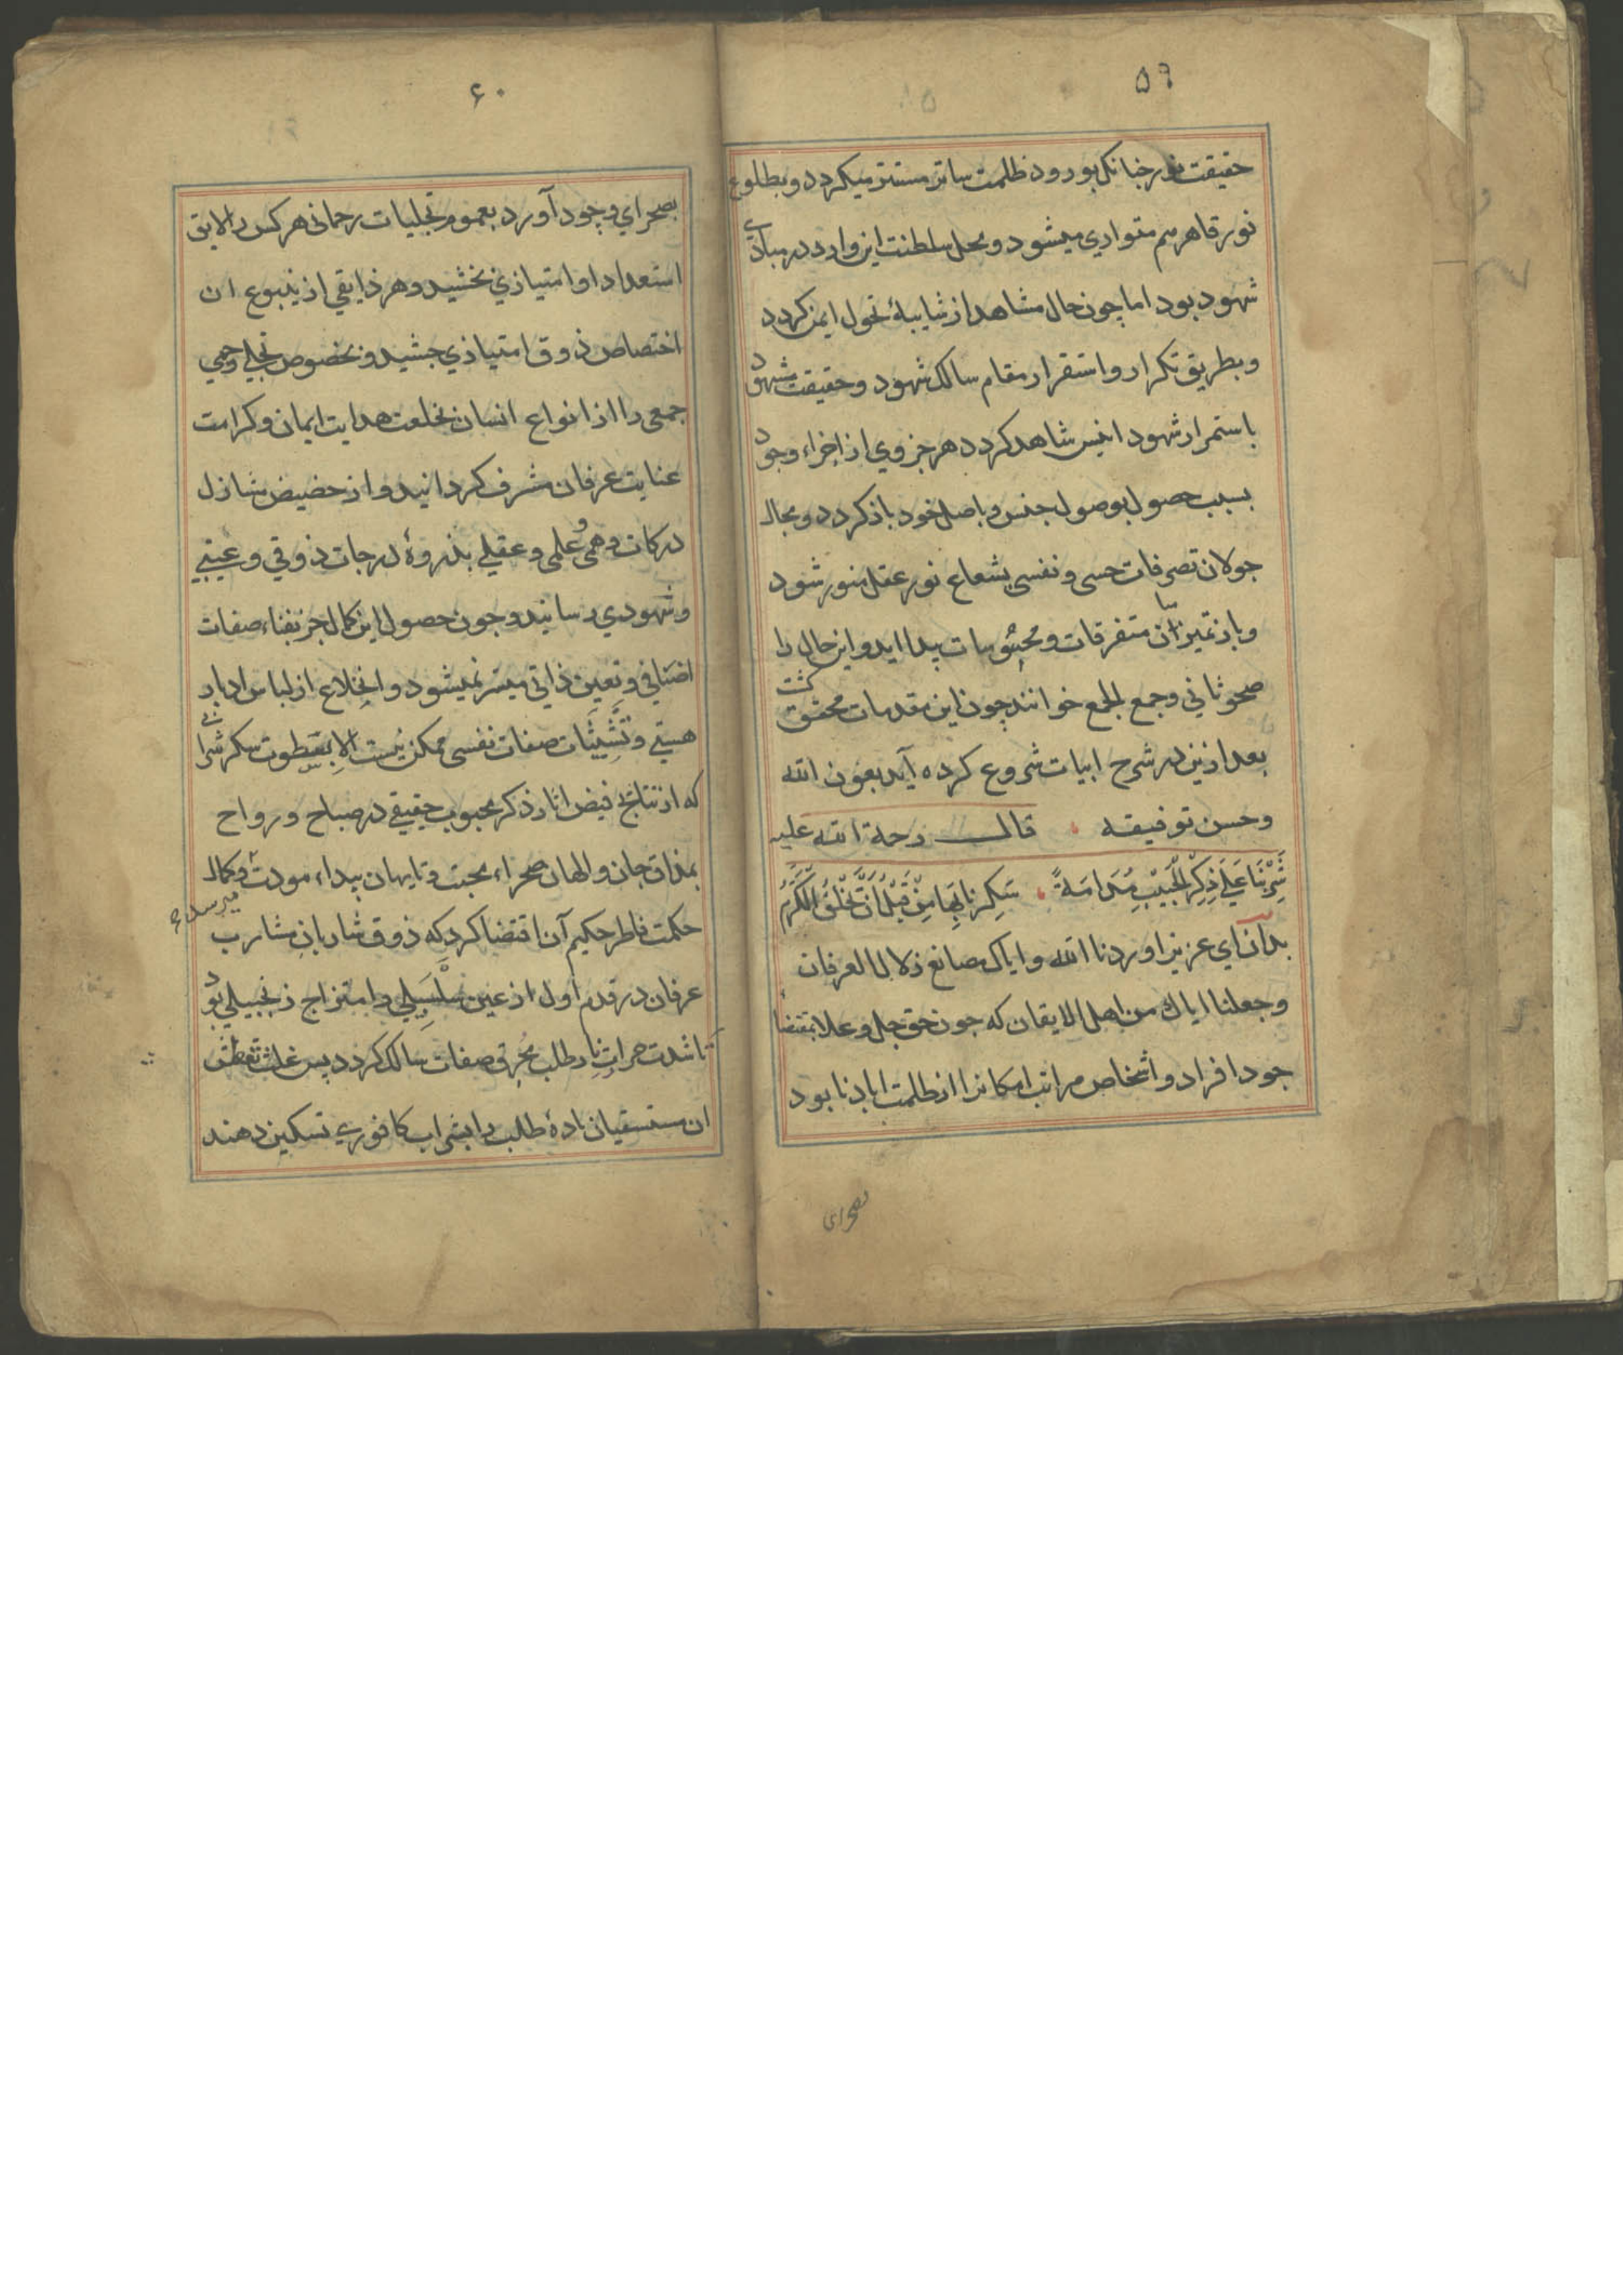 ۵۹
حقیقت نور چنانک بورود ظلمت ساتر مستتر میکردد و بطلوع
نور قاهر هم متواری میشود و محل سلطنت این وارد در مبادی
شهود بود اما چون حال مشاهد از شایبهٔ تحول ایمن کردد
و بطریق تکرار و استقرار مقام سالک شهود و حقیقت مشهود
باستمرار شهود انیس شاهد کردد هر جزوی از اجزاء وجود
بسبب حصول بوصول جنس و باصل خود باز کردد و مجال
جولان تصرفات حسی و نفسی بشعاع نور عقل منور شود
و باز تمیز میان متفرقات و محسوسات پیدا اید و این حال را
صحو ثانی و جمع الجمع خوانند چون این مقدمات محقق کشت
بعد ازین در شرح ابیات شروع کرده آید بعون الله
وحسن توفیقه قال رحمة الله علیه
شَرِبْنَا عَلَی ذِکْرِ الْحَبِیْبِ مُدَامَةً سَکِرْنَا بِهَا مِنْ قَبْلِ اَنْ یُخْلَقَ الْکَرْمُ
بدان ای عزیز اوردنا الله وایاک مصانع زلال العرفان
وجعلنا ایاک من اهل الایقان که چون حق جل وعلا بمقتضاء
جود افراد و اشخاص مراتب امکانرا از ظلمت اباد نابود
بصحرای
۶۰
بصحرای وجود آورد بعموم تجلیات رحمانی هرکس را لایق
استعداد او امتیازی بخشید و هر ذایقی از ینبوع ان
اختصاص ذوق امتیازی چشید و بخصوص تجلی رحیمی
جمعی را از انواع انسان بخلعت هدایت ایمان و کرامت
عنایت عرفان مشرف کردانید و از حضیض منازل
درکات وهمی و علمی و عقلی بذروهٔ درجات ذوقی و عینی
و شهودی رسانید و چون حصول این کمال جز بفناء صفات
اضافی و تعین ذاتی میسر نمیشود و انخلاع از لباس ادبار
هستی و تشبثات صفات نفسی ممکن نیست الا بسطوت سکر شرابی
که از نتایج فیض اثار ذکر محبوب حقیقی در صباح و رواح
بمذاق جان والهان صحراء محبت و تایهان بیداء مودت میرسد و کمال
حکمت فاطر حکیم آن اقتضا کرد که ذوق شاربان مشارب
عرفان در قدم اول از عین سلسبیلی و امتزاج زنجبیلی بود
تا شدت حرات نار طلب محرق صفات سالک کردد پس غلبت تعطش
ان مستسقیان بادهٔ طلب را بشراب کافوری تسکین دهند